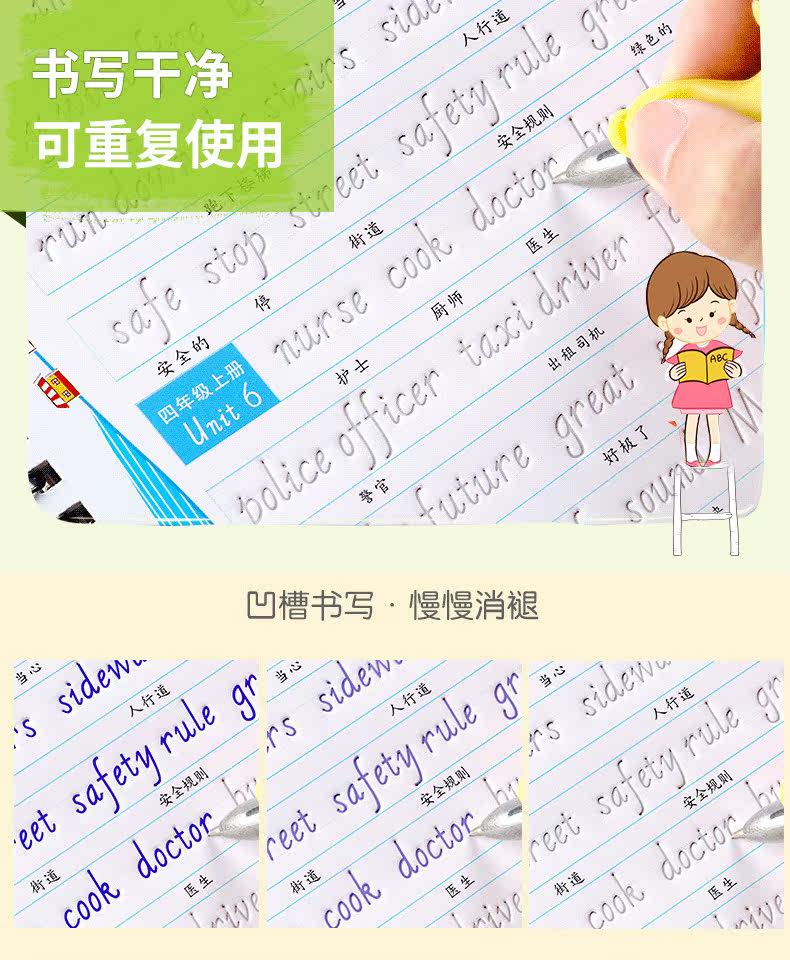 书写干净
可重复使用
stairs
人行道
绿色的
run
street
safety rule
安全规则
safe
stop
街道
doctor
医生
安全的
停
nurse
cook
厨师
四年级上册
Unit 6
护士
taxi driver
出租司机
police officer
警官
future
great
好极了
ABC
凹槽书写·慢慢消褪
当心
人行道
safety rule
安全规则
街道
cook
doctor
医生
当心
人行道
safety rule
安全规则
街道
cook
doctor
医生
当心
人行道
safety rule
安全规则
街道
cook
doctor
医生